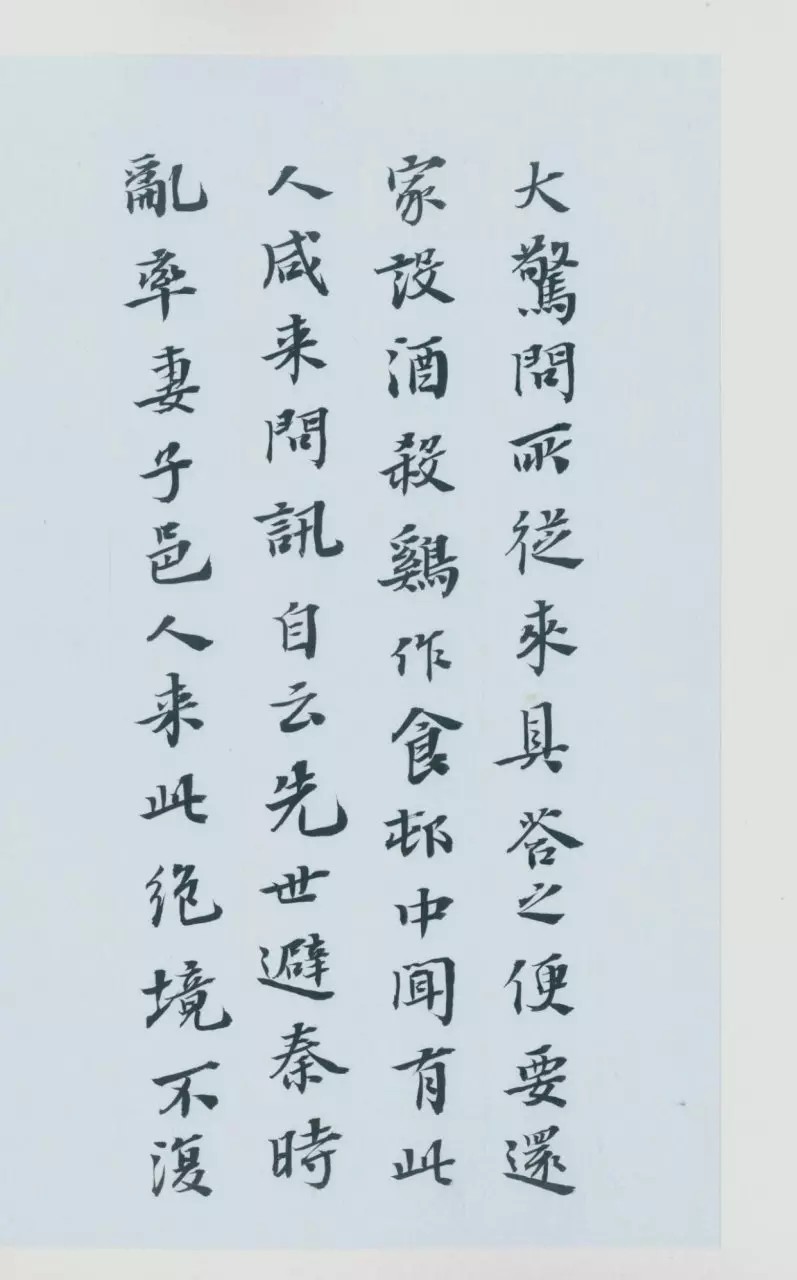 大驚問所從來具荅之便要還
家設酒殺鷄作食邨中聞有此
人咸来問訊自云先世避秦時
亂率妻子邑人来此絶境不復